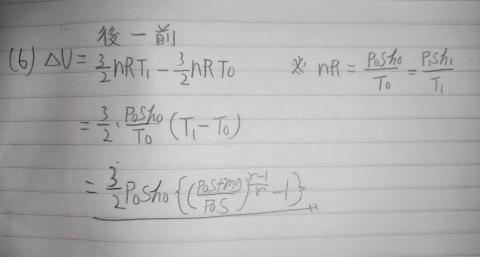 後 - 前
(6) ΔU = 3/2 nRT₁ - 3/2 nRT₀ ※ nR = P₀Sh₀/T₀ = P₁Sh₁/T₁
= 3/2 · P₀Sh₀/T₀ (T₁ - T₀)
= 3/2 P₀Sh₀ {((P₀S+mg)/P₀S)^((r-1)/r) - 1}